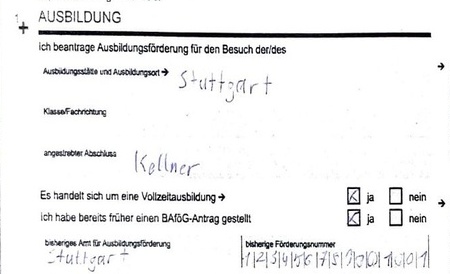 1 AUSBILDUNG
ich beantrage Ausbildungsförderung für den Besuch der/des
Ausbildungsstätte und Ausbildungsort → Stuttgart
Klasse/Fachrichtung
angestrebter Abschluss Kellner
Es handelt sich um eine Vollzeitausbildung → ja nein
ich habe bereits früher einen BAföG-Antrag gestellt ja nein
bisheriges Amt für Ausbildungsförderung bisherige Förderungsnummer
Stuttgart